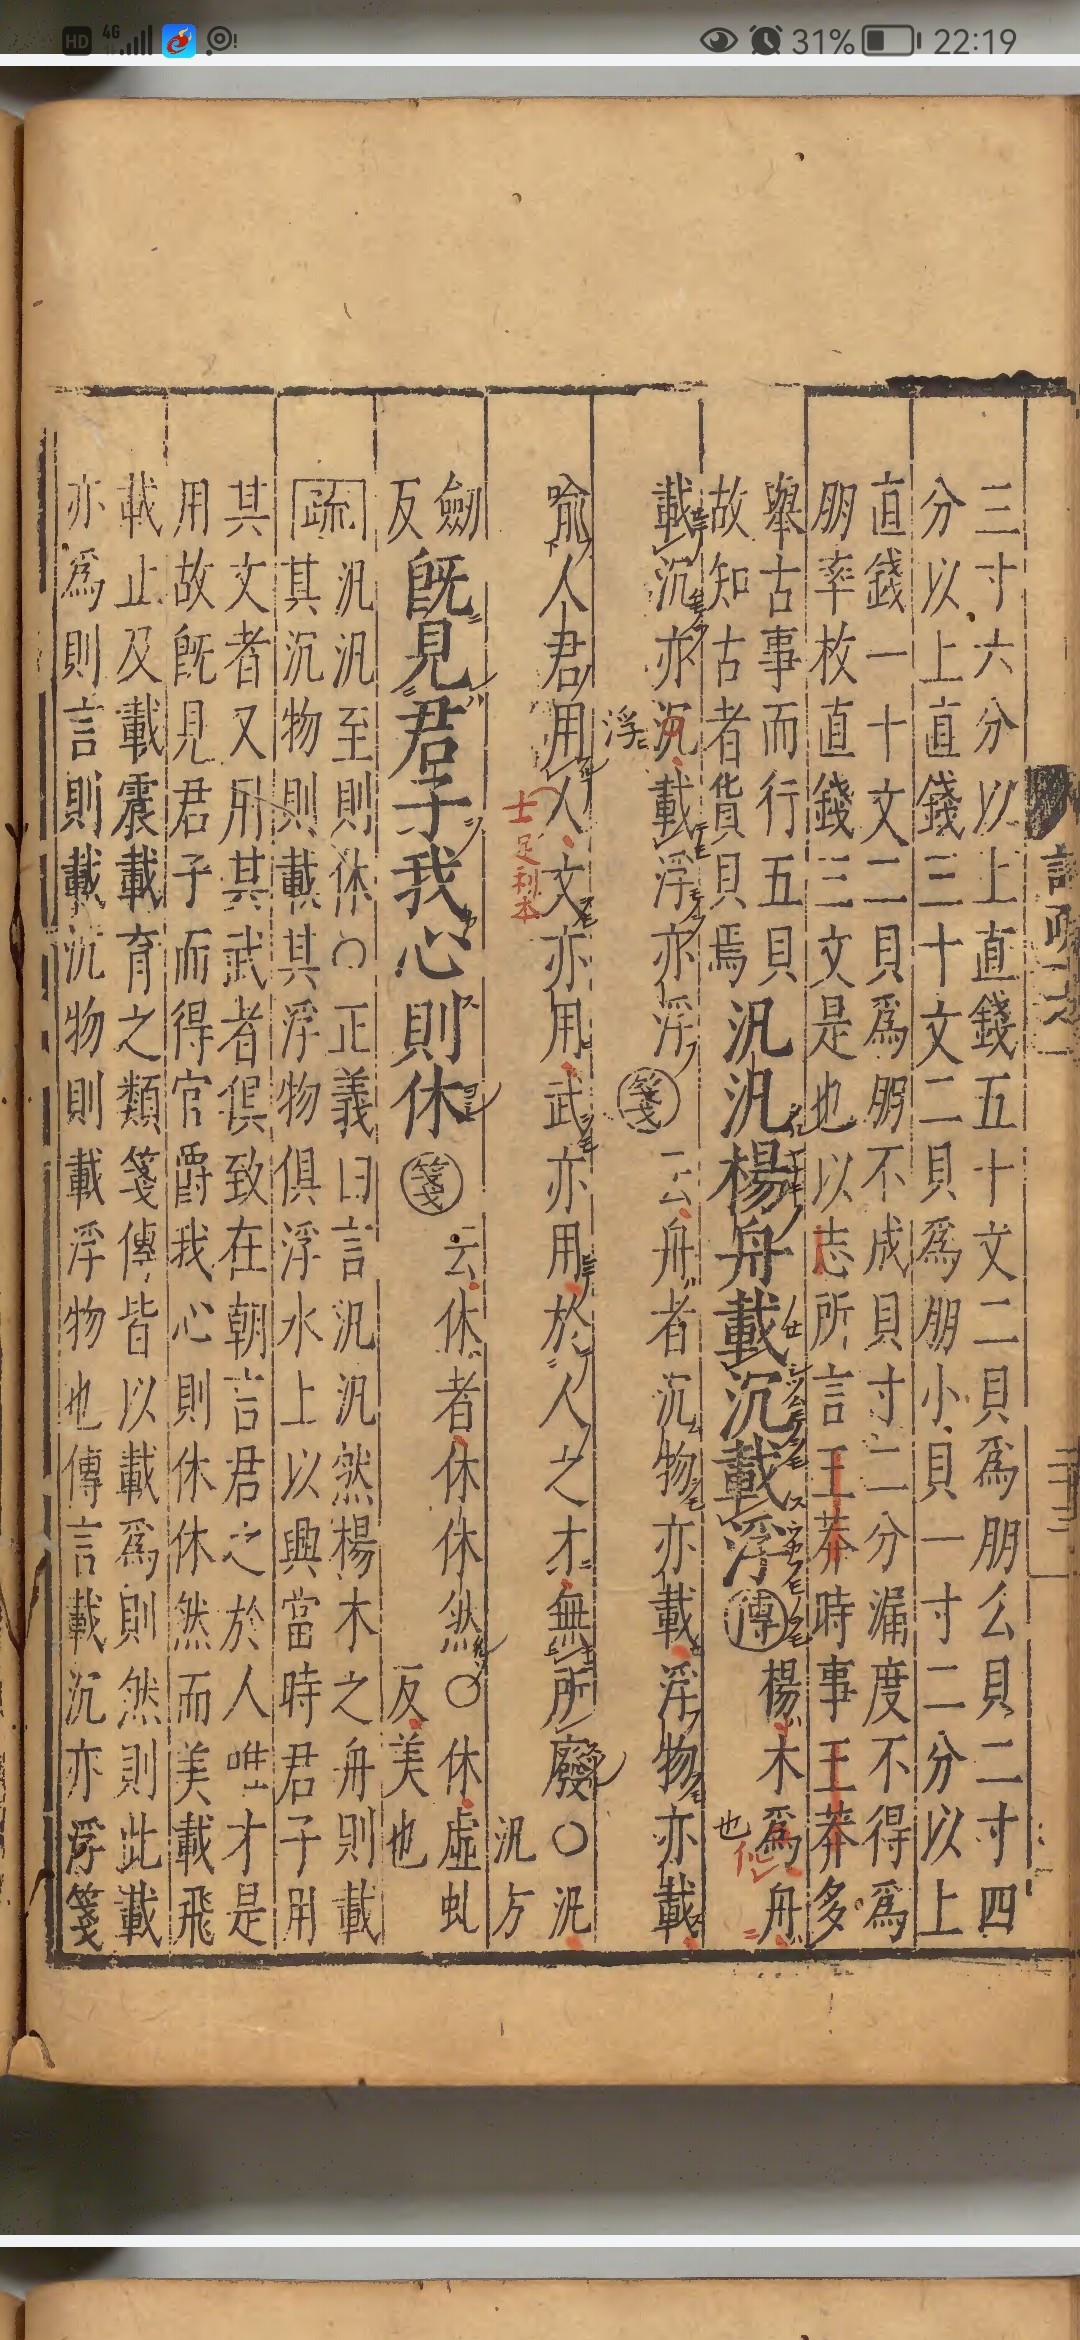 HD 4G 31% 22:19
三寸六分以上直錢五十文二貝爲朋么貝二寸四
分以上直錢三十文二貝爲朋小貝一寸二分以上
直錢一十文二貝爲朋不成貝寸二分漏度不得爲
朋率枚直錢三文是也以志所言王莽時事王莽多
舉古事而行五貝
故知古者貨貝焉
汎汎楊舟載沉載浮 傳 楊木爲舟
也
載沉亦沉載浮亦浮 箋 云舟者沉物亦載浮物亦載
浮
喻人君用人文亦用武亦用於人之才無所廢○汎
士足利本
汎方
劒
反
既見君子我心則休 箋 云休者休休然○休虛虬
反美也
疏 汎汎至則休○正義曰言汎汎然楊木之舟則載
其沉物則載其浮物俱浮水上以興當時君子用
其文者又用其武者俱致在朝言君之於人唯才是
用故既見君子而得官爵我心則休休然而美載飛
載止及載震載育之類箋傳皆以載爲則然則此載
亦爲則言則載沉物則載浮物也傳言載沉亦浮箋